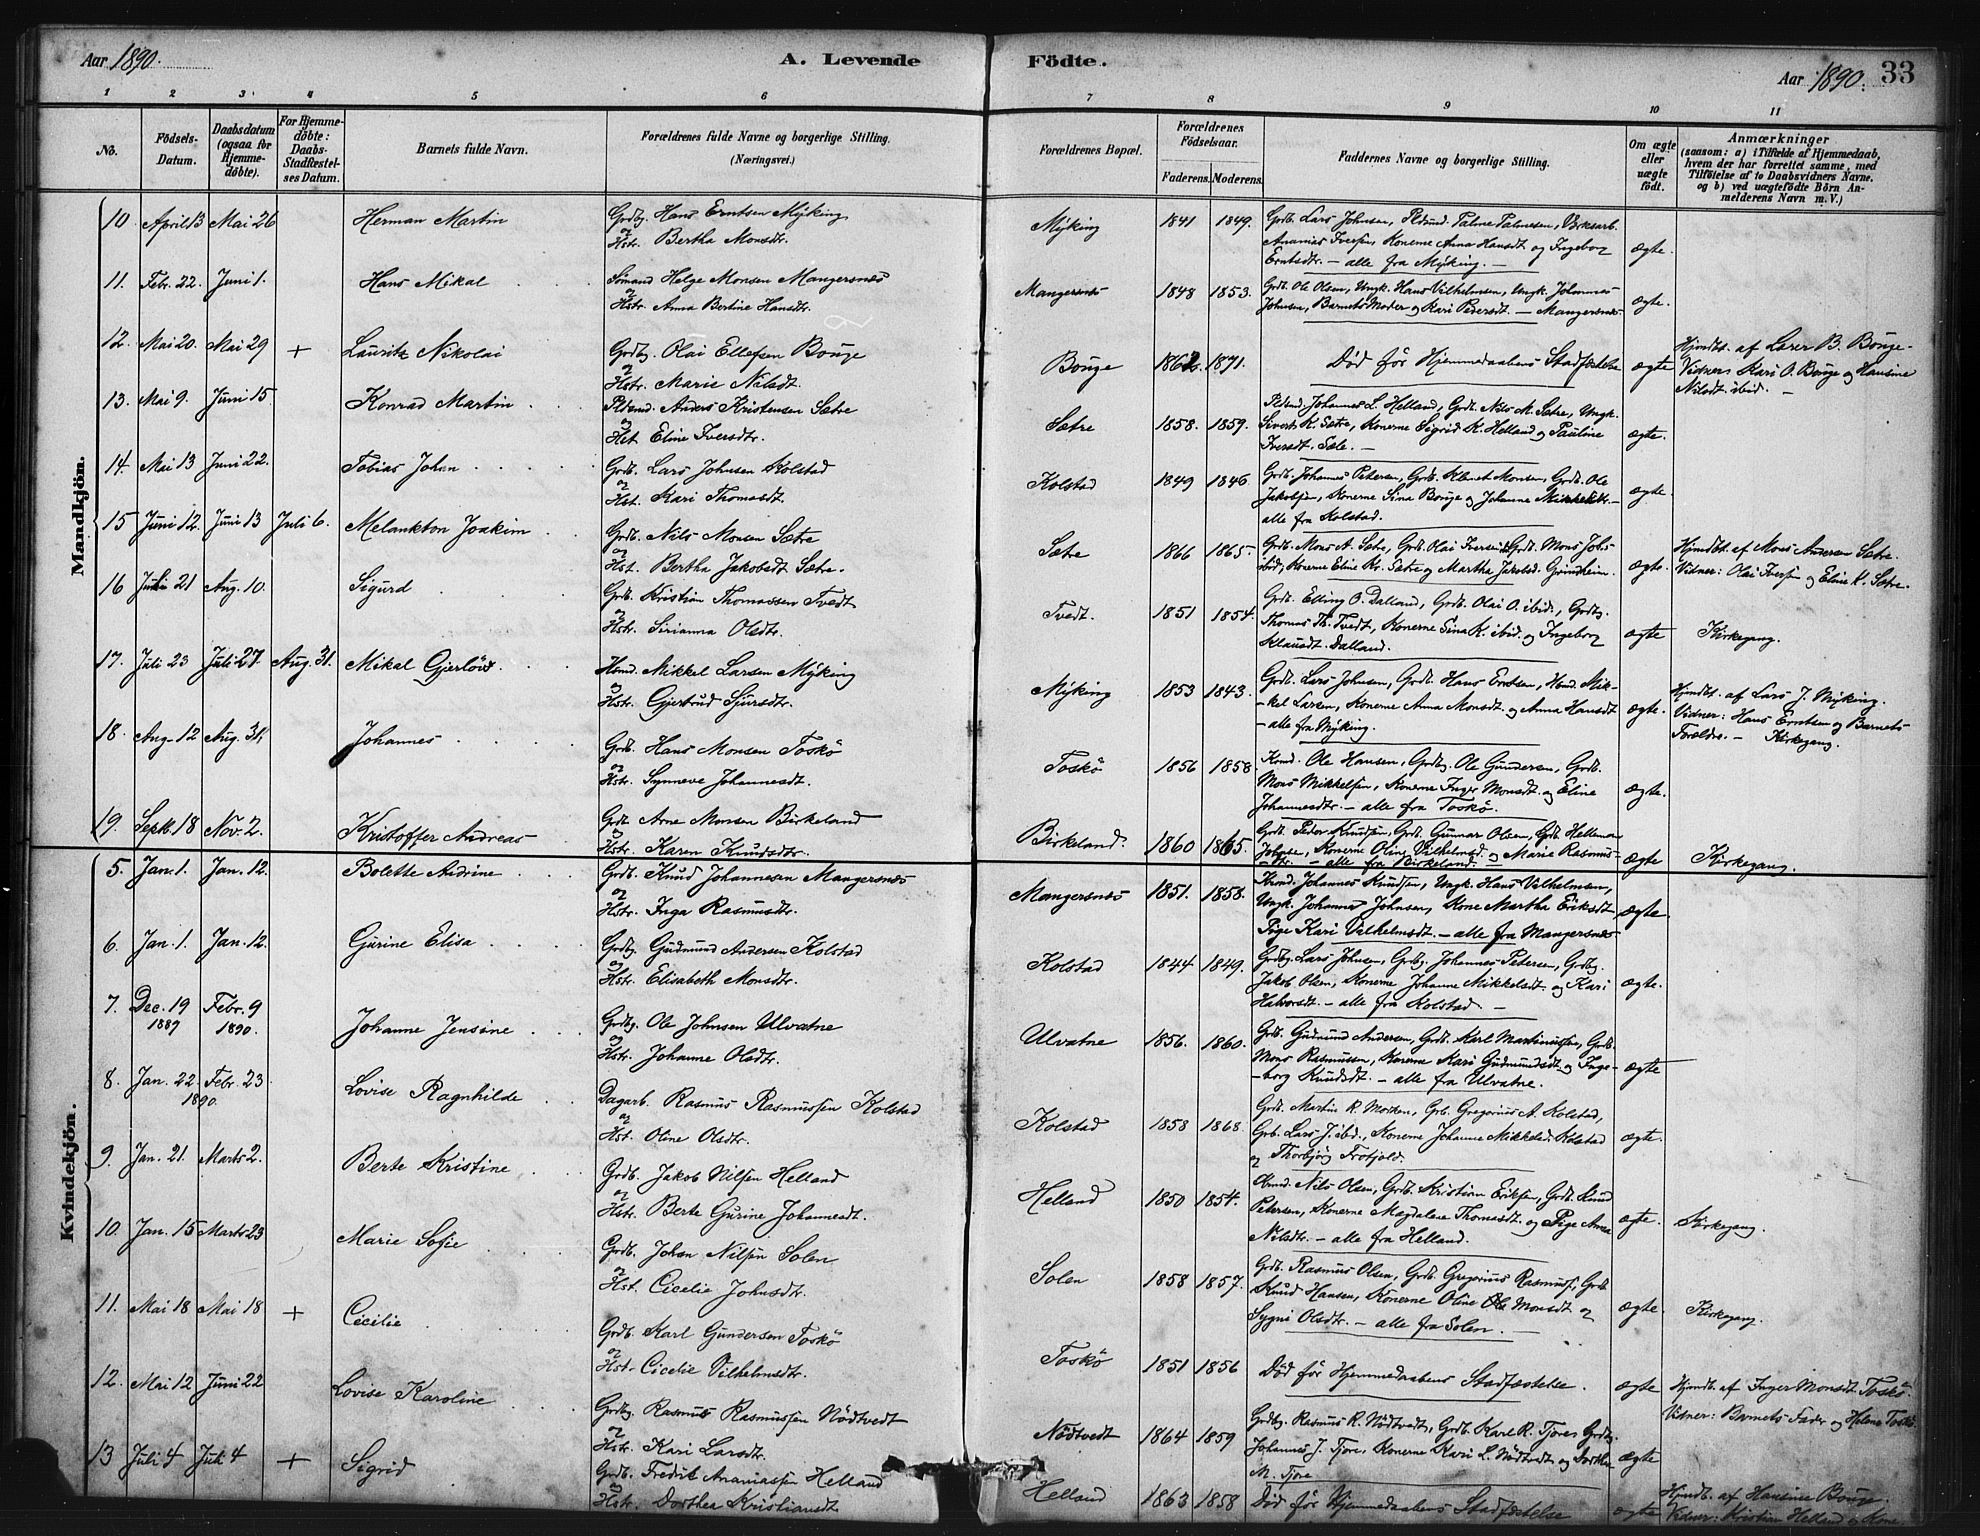 Aar 1890. A. Levende Födte. Aar 1890. 33
1 2 3 4 5 6 7 8 9 10 11
No. Födsels-Datum. Daabsdatum (ogsaa for Hjemme-döbte). For Hjemme-döbte: Daabs-Stadfæstel-ses Datum. Barnets fulde Navn. Forældrenes fulde Navne og borgerlige Stilling. (Næringsvei.) Forældrenes Bopæl. Forældrenes Födselsaar. Faderens. Moderens. Faddernes Navne og borgerlige Stilling. Om ægte eller uægte födt. Anmærkninger (saasom: a) i Tilfælde af Hjemmedaab, hvem der har forrettet samme, med Tilföielse af to Daabsvidners Navne, og b) ved uægtefödte Börn An-melderens Navn m. V.)
Mandkjön.
10 April 13 Mai 26 Herman Martin Grdbg. Hans Erntsen Mÿking
og Hstr. Bertha Monsdtr. Mÿking 1841 1849. Grdb. Lars Johnsen, Plsmd. Palme Palmesen, Verksarb.
Ananias Iversen, Konerne Anna Hansdt. og Ingeborg
Erntsdtr. – alle fra Mÿking. – ægte.
11. Febr. 22. Juni 1. Hans Mikal Sömand Helge Monsen Mangersnæs
og Hstr. Anna Bertine Hansdtr. Mangersnæs 1848 1853. Grdb. Ole Olsen, Ungk. Hans Vilhelmsen, Ungk. Johannes
Johnsen, Barnets Moder og Kari Pedersdt. – Mangersnæs. ægte.
12. Mai 20. Mai 29 + Lauritz Nikolai Grdbg. Olai Ellefsen Bouge
og Hstr. Marie Nilsdt. Bouge 1862. 1871. Död för Hjemmedaabens Stadfæstelse ægte Hjmdbt. af Lasse B. Bouge.
Vidner: Kari O. Bouge og Hansine
Nilsdt. ibid. –
13. Mai 9. Juni 15. Konrad Martin Plsmd. Anders Kristensen Sætre
og Hst. Eline Iversdtr. Sætre 1858. 1859. Plsmd. Johannes L. Helland, Grdb. Nils M. Sætre, Ungk.
Sivert K. Sætre, Konerne Sigrid K. Helland og Pauline
Iversdt. Sæle. – ægte.
14. Mai 13 Juni 22. Tobias Johan Grdb. Lars Johnsen Kolstad
og Hst. Kari Thomasdt. Kolstad 1849 1846 Grdb. Johannes Petersen, Grdb. Klemet Monsen, Grdb. Ole
Jakobsen, Konerne Sina Bouge og Johanne Mikkelsdt. –
alle fra Kolstad. ægte.
15 Juni 12. Juni 13 Juli 6. Melankton Joakim Grdb. Nils Monsen Sætre
og Hst. Bertha Jakobsdt. Sætre. Sætre 1866 1865. Grdb. Mons A. Sætre, Grdb. Olai Iversen, Grdb. Mons Johs.
ibid., Konerne Eline Kr. Sætre og Martha Jakobsd. Grindheim. ægte. Hjmdbt. af Mons Andersen Sætre.
Vidner: Olai Iversen og Eline K. Sætre.
16 Juli 21 Aug. 10. Sigurd Grdb. Kristian Thomassen Tvedt
og Hstr. Sirianna Olsdtr. Tvedt. 1851 1854. Grdb. Elling O. Dalland, Grdb. Olai O. ibid., Grdbg.
Thomas Th. Tvedt, Konerne Sina K. ibid. og Ingeborg
Klausdt. Dalland. ægte Kirkegang.
17. Juli 23 Juli 27. Aug. 31. Mikal Gjerlöw Hsmd. Mikkel Larsen Mÿking
og Hstr. Gjertrud Sjursdtr. Mÿking 1853 1843. Grdb. Lars Johnsen, Grdb. Hans Erntsen, Hsmd. Mik-
-kel Larsen, Konerne Anna Monsdt. og Anna Hansdt.
– alle fra Mÿking. ægte. Hjmdbt. af Lars J. Mÿking.
Vidner: Hans Erntsen og Barnets
Forældre. – Kirkegang.
18. Aug. 12 Aug. 31. Johannes Grdb. Hans Monsen Toskö
og Hstr. Synneve Johannesdt. Toskö 1856 1858. Kmd. Ole Hansen, Grdbg. Ole Gundersen, Grdb.
Mons Mikkelsen, Konerne Inger Monsdt. og Eline
Johannesdtr. – alle fra Toskö. ægte.
19. Septr. 18 Nov. 2. Kristoffer Andreas Grdb. Arne Monsen Birkeland
og Hstr. Karen Knudsdtr. Birkeland. 1860 1865. Grdb. Peder Knudsen, Grdb. Gunnar Olsen, Grdb. Helleman
Johnsen, Konerne Oline Vilhelmsd. og Marie Rasmus-
-dtr. – alle fra Birkeland. ægte Kirkegang.
Kvindekjön.
5. Jan. 1. Jan. 12. Bolette Andrine Grdb. Knud Johannesen Mangersnæs
og Hstr. Inga Rasmusdtr. Mangersnæs 1851. 1858. Kmd. Johannes Knudsen, Ungk. Hans Vilhelmsen,
Ungk. Johannes Johnsen, Kone Martha Eriksdt.
Pige Kari Vilhelmsdt. – alle fra Mangersnæs. ægte
6. Jan. 1. Jan. 12. Gurine Elisa Grdbg. Gudmund Andersen Kolstad
og Hstr. Elisabeth Monsdtr. Kolstad 1844 1849. Grdbg. Lars Johnsen, Grdbg. Johannes Petersen, Grdbg.
Jakob Olsen, Konerne Johanne Mikkelsdt. og Kari
Halvorsdt. – alle fra Kolstad. – ægte.
7. Dec. 19 1889 Febr. 9 1890. Johanne Jensine Grdbg. Ole Johnsen Ulvatne
og Hstr. Johanne Olsdtr. Ulvatne 1856. 1860. Grdb. Gudmund Andersen, Grdb. Karl Martinussen, Grdb.
Mons Rasmussen, Konerne Kari Gudmundsdt. og Inge-
-borg Knudsdt. – alle fra Ulvatne. ægte
8. Jan. 22. 1890. Febr. 23 Lovise Ragnhilde Dagarb. Rasmus Rasmussen Kolstad
og Hst. Oline Olsdtr. Kolstad 1858 1868. Grdb. Martin R. Morken, Grb. Gregorius A. Kolstad,
Grb. Lars J. ibd., Konerne Johanne Mikkelsd. Kolstad
og Thorbjörg Frotjold. ægte.
9. Jan. 21. Marts 2. Berte Kristine Grdb. Jakob Nilsen Helland
og Hstr. Berte Gurine Johannesdt. Helland 1850 1854. Kmd. Nils Olsen, Grdb. Kristian Eriksen, Grdb. Knud
Petersen, Konerne Magdalene Thomasdt. og Pige Anna
Nilsdt. – alle fra Helland. ægte. Kirkegang.
10. Jan. 15 Marts 23 Marie Sofie Grdb. Johan Nilsen Solen
og Hst. Cicelie Johnsdtr. Solen 1858 1857. Grdb. Rasmus Olsen, Grdb. Gregorius Rasmuss., Grdb.
Knud Hansen, Konerne Oline Monsdt. og
Sygni Olsdtr. – alle fra Solen. – ægte Kirkegang.
11. Mai 18 Mai 18 + Cecilie Grdb. Karl Gundersen Toskö
og Hst. Cicelie Vilhelmsdtr. Toskö 1851 1856 Död för Hjemmedaabens Stadfæstelse. ægte Hjmdb. af Inger Monsdt. Toskö.
Vidner: Barnets Fader og Helene Toskö
12. Mai 12 Juni 22 Lovise Karoline Grdbg. Rasmus Rasmussen Nödtvedt
og Hstr. Kari Larsdt. Nödtvedt 1864 1859 Grdbg. Rasmus R. Nödtvedt, Grdb. Karl R. Tjore, Grdbg.
Johannes J. Tjore, Konerne Kari L. Nödtvedt og Dorthea
M. Tjore ægte
13 Juli 4 Juli 4 + Sigrid Grdb. Fredrik Ananiassen Helland
og Hstr. Dorthea Kristiansdt. Helland 1863 1858 Död för Hjemmedaabens Stadfæstelse ægte Hjmdb. af Hansine Bouge.
Vidner: Kristian Helland og Kone.